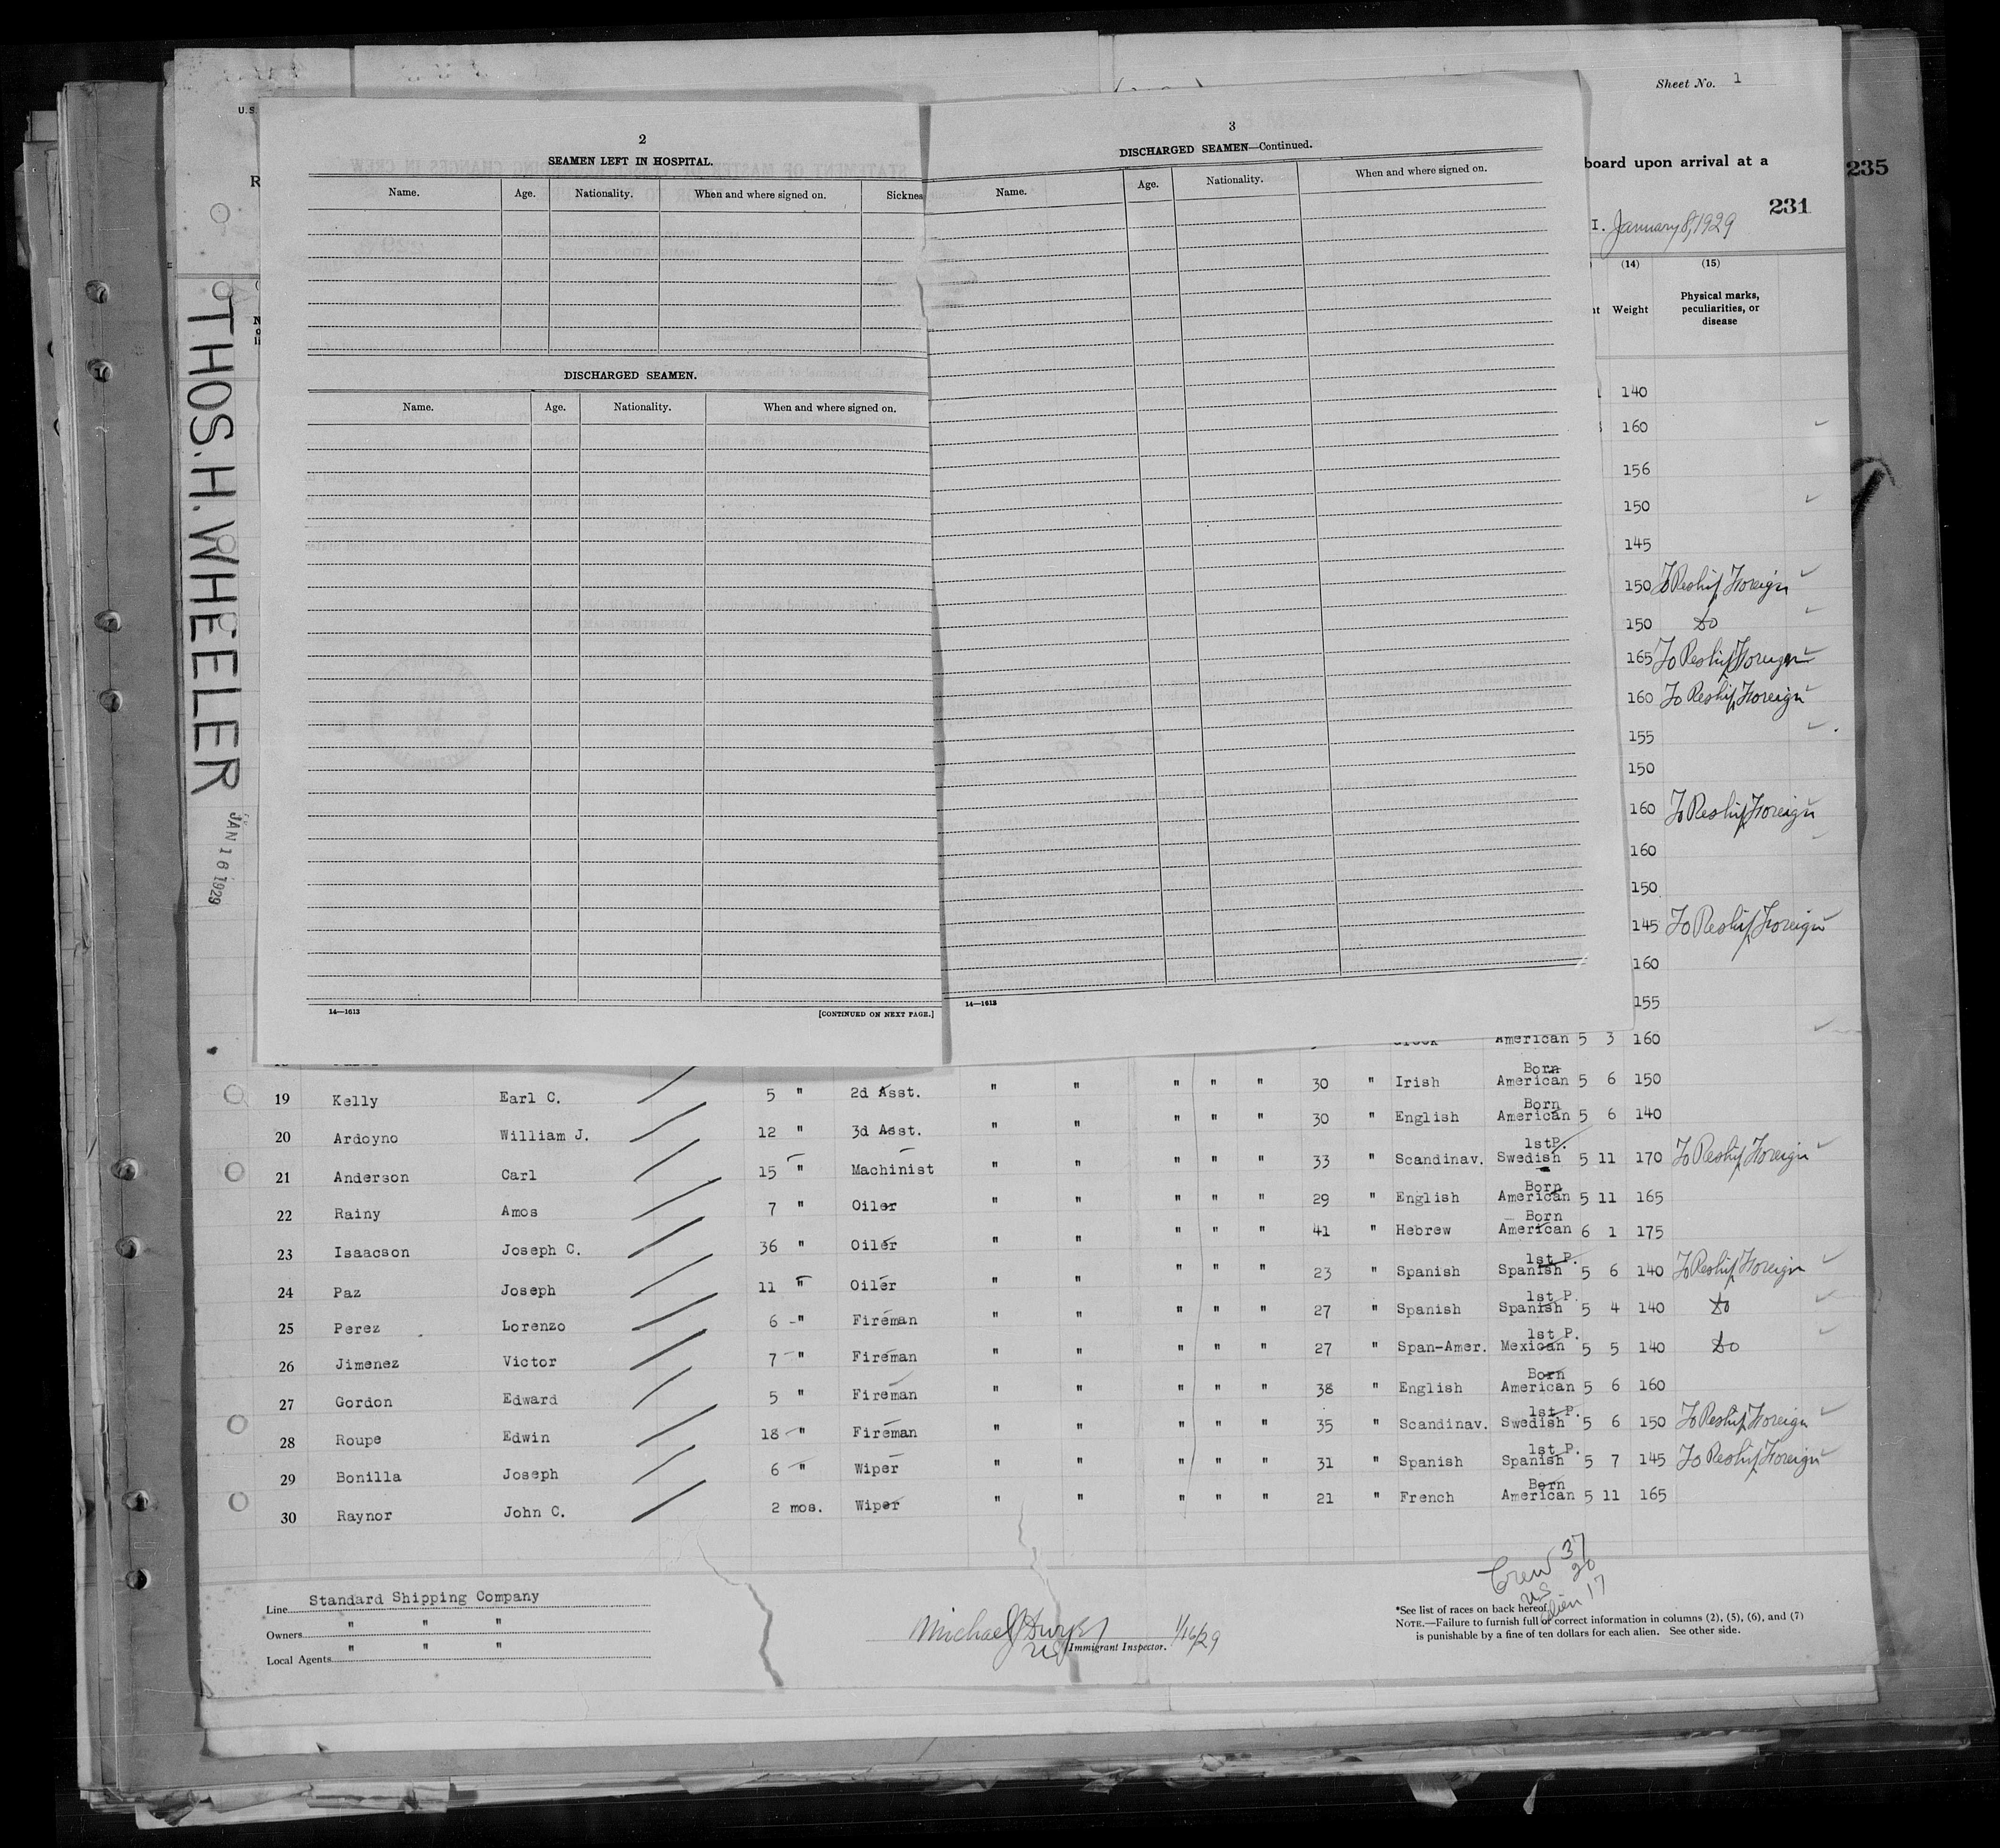 Sheet No. 1
U.S.
board upon arrival at a
235
231
I. January 8, 1929
(14) (15)
Weight Physical marks, peculiarities, or disease
THOS. H. WHEELER
JAN 16 1929
2
SEAMEN LEFT IN HOSPITAL.
Name. Age. Nationality. When and where signed on.
DISCHARGED SEAMEN.
Name. Age. Nationality. When and where signed on.
14—1613 [CONTINUED ON NEXT PAGE.]
3
DISCHARGED SEAMEN—Continued.
Name. Age. Nationality. When and where signed on.
14—1613
140
160
156
150
145
150 To Reship Foreign
150 do
165 To Reship Foreign
160 To Reship Foreign
155
150
160 To Reship Foreign
160
150
145 To Reship Foreign
160
155
American 5 3 160
19 Kelly Earl C. 5 " 2d Asst. " " " " " 30 " Irish Born American 5 6 150
20 Ardoyno William J. 12 " 3d Asst. " " " " " 30 " English Born American 5 6 140
21 Anderson Carl 15 " Machinist " " " " " 33 " Scandinav. 1st P. Swedish 5 11 170 To Reship Foreign
22 Rainy Amos 7 " Oiler " " " " " 29 " English Born American 5 11 165
23 Isaacson Joseph C. 36 " Oiler " " " " " 41 " Hebrew Born American 6 1 175
24 Paz Joseph 11 " Oiler " " " " " 23 " Spanish 1st P. Spanish 5 6 140 To Reship Foreign
25 Perez Lorenzo 6 " Fireman " " " " " 27 " Spanish 1st P. Spanish 5 4 140 do
26 Jimenez Victor 7 " Fireman " " " " " 27 " Span-Amer. 1st P. Mexican 5 5 140 do
27 Gordon Edward 5 " Fireman " " " " " 38 " English Born American 5 6 160
28 Roupe Edwin 18 " Fireman " " " " " 35 " Scandinav. 1st P. Swedish 5 6 150 To Reship Foreign
29 Bonilla Joseph 6 " Wiper " " " " " 31 " Spanish 1st P. Spanish 5 7 145 To Reship Foreign
30 Raynor John C. 2 mos. Wiper " " " " " 21 " French Born American 5 11 165
Crew 37
US 20
Alien 17
Line Standard Shipping Company
Owners " " "
Local Agents " " "
Michael J Dwyer
Immigrant Inspector. 1/16/29
*See list of races on back hereof.
NOTE.—Failure to furnish full or correct information in columns (2), (5), (6), and (7)
is punishable by a fine of ten dollars for each alien. See other side.